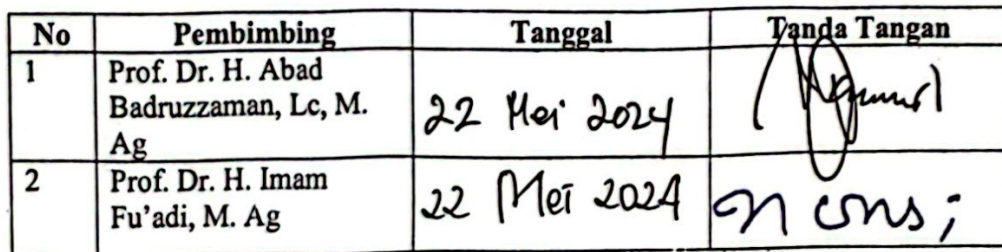 No Pembimbing Tanggal Tanda Tangan
1 Prof. Dr. H. Abad
Badruzzaman, Lc, M.
Ag
22 Mei 2024
2 Prof. Dr. H. Imam
Fu'adi, M. Ag
22 Mei 2024